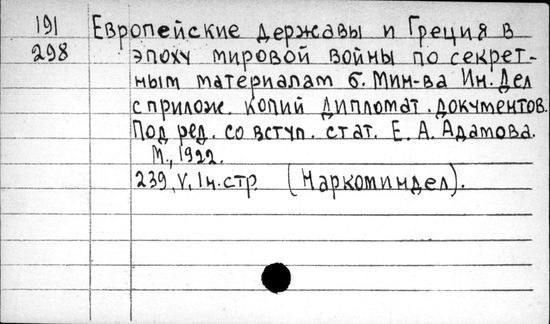 191 Европейские державы и Греция в
298 эпоху мировой войны по секрет-
ным материалам б. Мин-ва Ин. Дел
с прилож. копий дипломат. документов.
Под ред. со вступ. стат. Е. А. Адамова.
М., 1922.
239, V, 1н. стр (Наркоминдел).